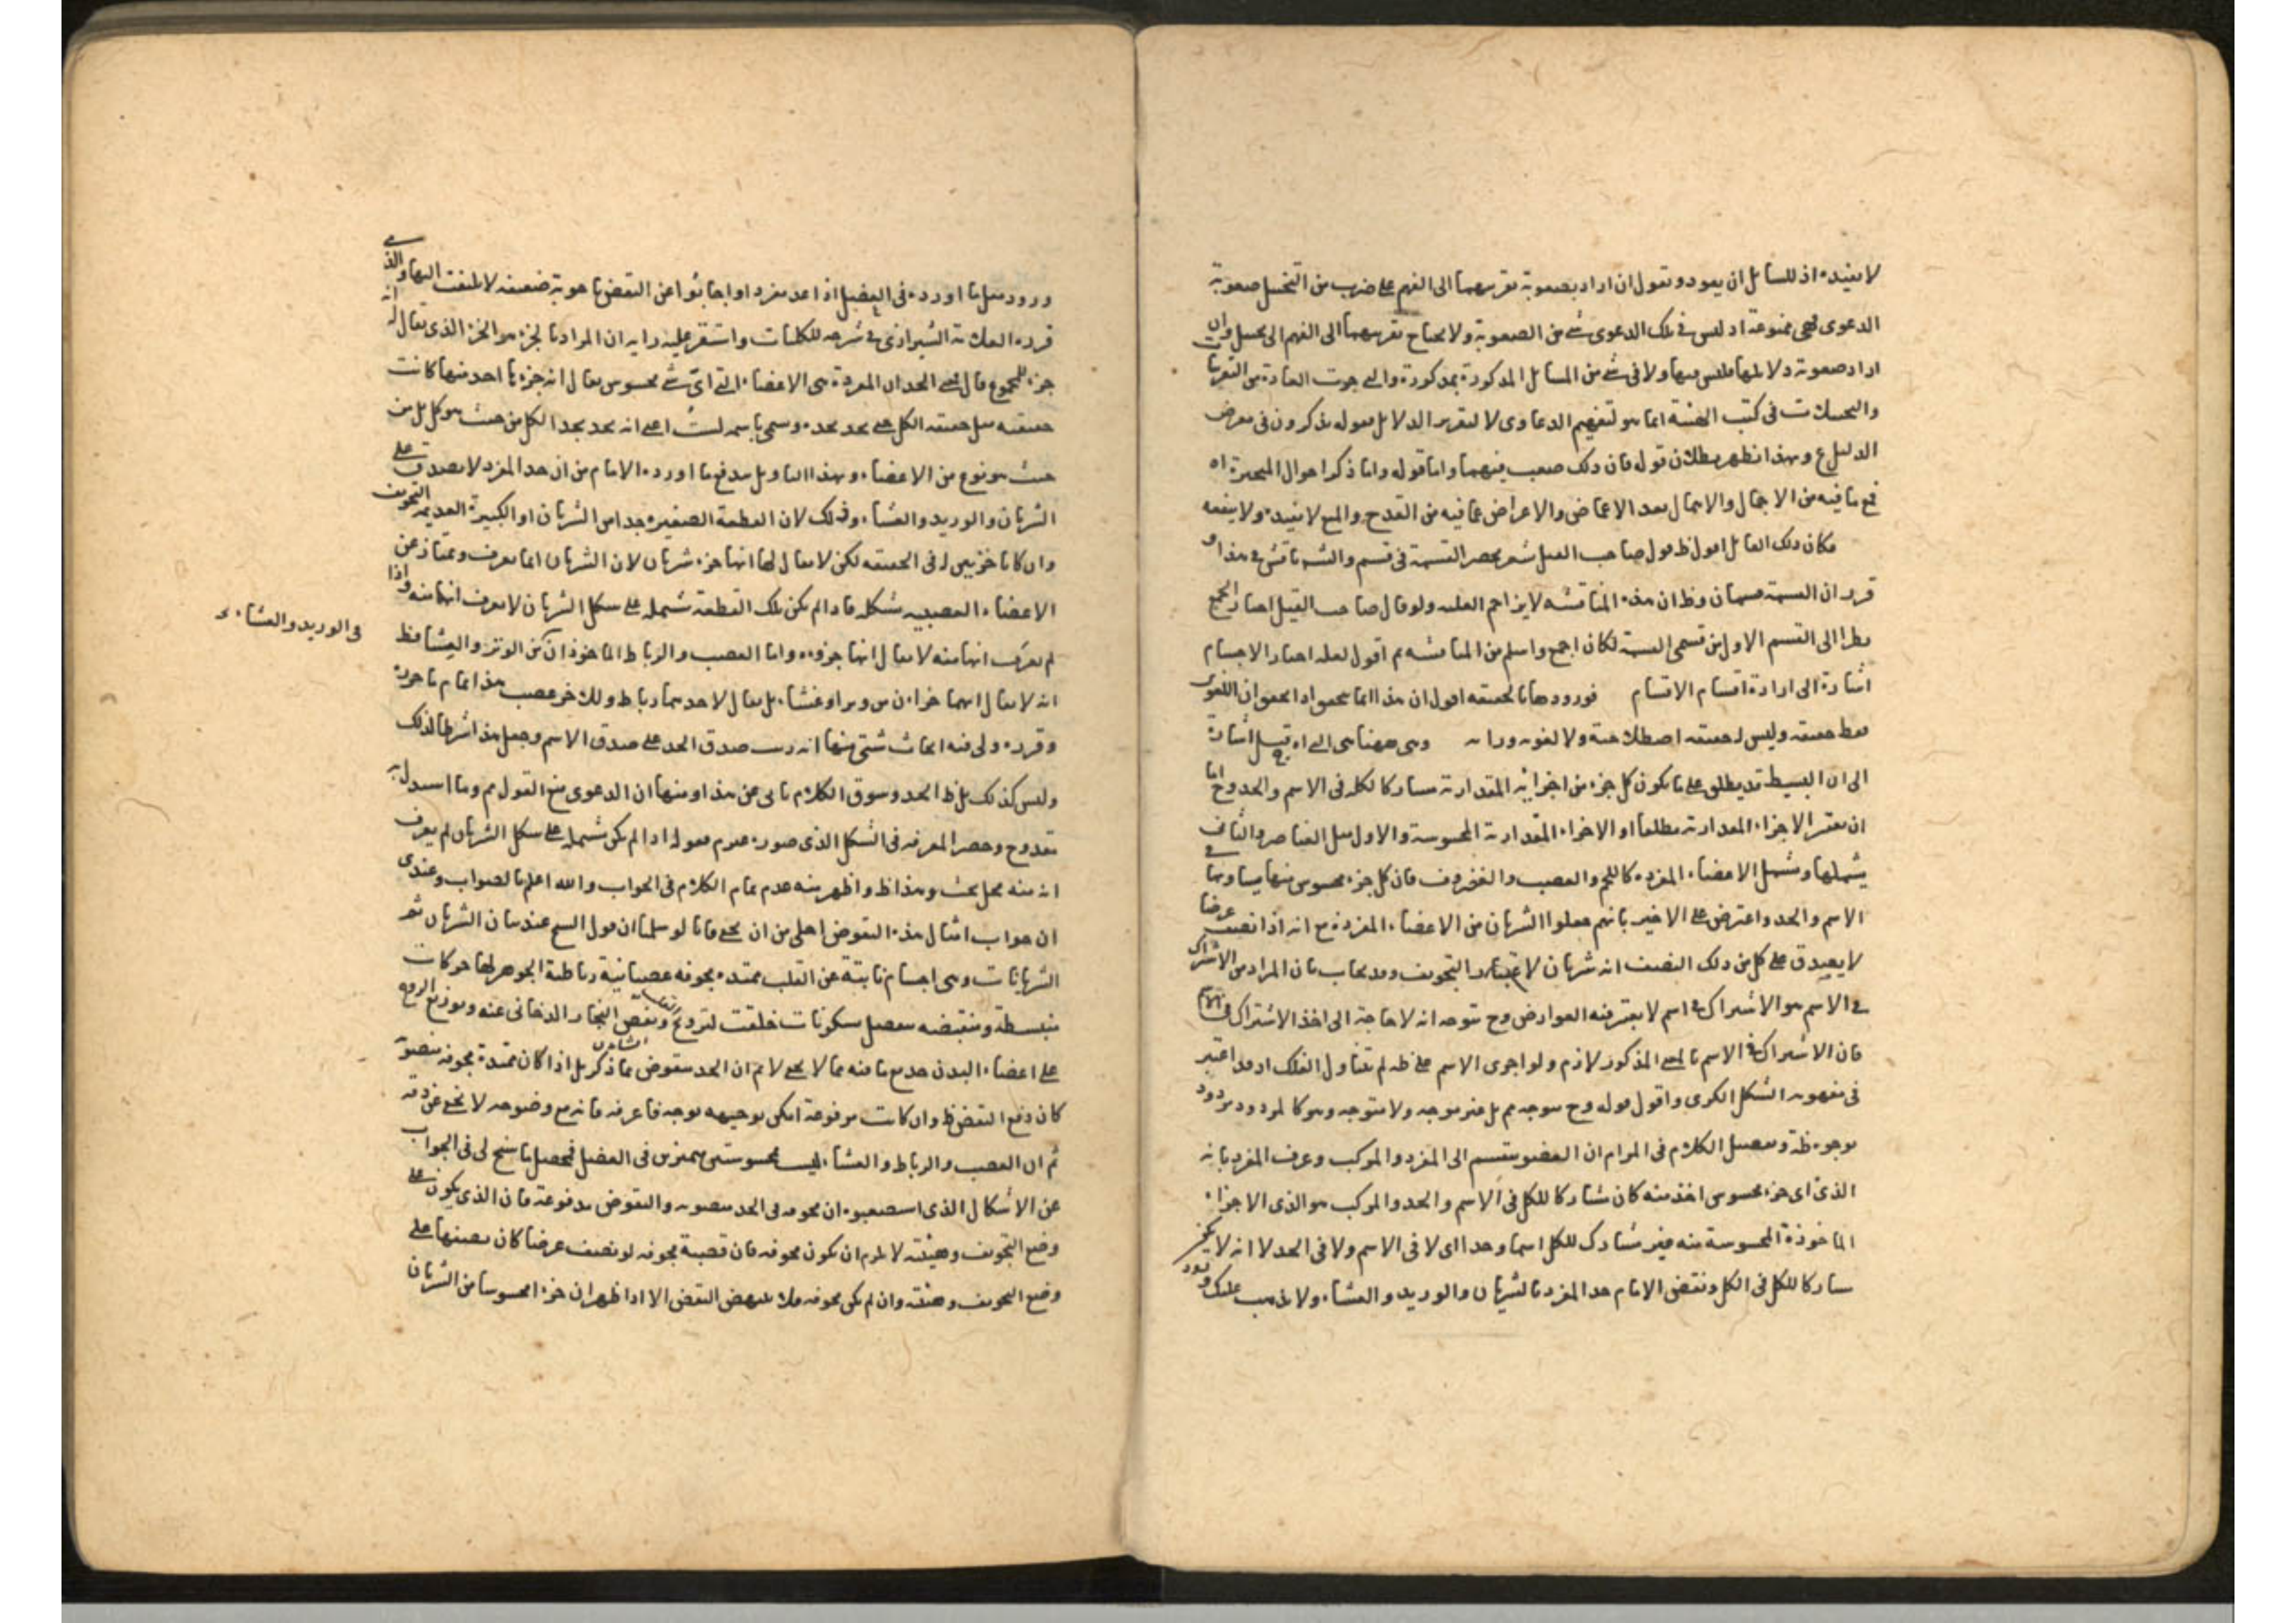 لا يفيده اذ للسائل ان يعود و يقول ان اراد بصعوبة تقريرهما الى الفهم على ضرب من التخيل صعوبة
الدعوى فهى ممنوعة اذ ليس فى تلك الدعوى شئ من الصعوبة ولا يحتاج تقريرهما الى الفهم الى تخيل وان
اراد صعوبة دلائلها فليس فيها ولا فى شئ من المسائل المذكورة بمذكورة والتى جرت العادة من التقريبات
فى كتب الهيئة انما هو لتفهيم الدعاوى لا لتقرير الدلائل يذكرون فى معرض
الدليل وبهذا تظهر بطلان قوله فان ذلك صعب فيهما واما قوله واما ذكر احوال المتحيرة اه
فمع ما فيه من الاجمال والاهمال بعد الاغماض والاعراض عما فيه من القدح والمنع لا يفيده ولا ينفعه
فكان ذلك القائل اقول ظ قول صاحب القيل يشعر بحصر القسمة فى قسم والشه ناقش فى هذا و
قرر ان القسمة قسمان وظ ان هذه المناقشة لا يزاحم ولو قال صاحب القيل الجمع
نظرا الى القسم الاول من قسمى القسمة لكان اجمع واسلم من المناقشه ثم اقول لعله اختار الاجسام
اشارة الى ارادة اقسام الاقسام فورودها بالحقيقه اقول ان هذا انما يتحقق اذا تحقق ان اللغوى
فقط حقيقه وليس له حقيقه اصطلاحية ولا لغويه وراءه وهى ههنا هى التى اه قيل اشارة
الى ان البسيط قد يطلق على ما يكون كل جزء من اجزائه المقدارية مشاركا لكله فى الاسم والحد وح اما
ان يعتبر الاجزاء المقدارية مطلقا او الاجزاء المقدارية المحسوسة والاول مثل العناصر والثانى
يشملها ويشمل الاعضاء المفردة كاللحم والعصب والغضروف فان كل جزء محسوس منها يساويها فى
الاسم والحد واعترض على الاخير بانهم جعلوا الشريان من الاعضاء المفردة مع انه اذا نصف عرضا
لا يصدق على كل من ذلك النصف انه شريان لاعتبار التجويف وقد يجاب بان المراد من الاشتراك
فى الاسم هو الاشتراك فى اسم لا يعتبر فيه العوارض وح يتوجه انه لا حاجة الى اخذ الاشتراك فى الاسم
فان الاشتراك فى الاسم بالمعنى المذكور لازم ولو اجرى الاسم على ظه لم يتناول الفلك اذ قد اعتبر
فى مفهومه الشكل الكرى واقول قوله وح يتوجه مم بل غير موجه ولا متوجه وهو كالمردود مردود
بوجوه ظة وتفصيل الكلام فى المرام ان العضو ينقسم الى المفرد والمركب وعرف المفرد بانه
الذى اى جزء محسوس اخذ منه كان مشاركا للكل فى الاسم والحد والمركب هو الذى الاجزاء
الماخوذة المحسوسة منه غير مشارك للكل اسما وحدا اى لا فى الاسم ولا فى الحد لا انه لا يكون
مشاركا للكل فى الكل ونقض الامام حد المفرد بالشريان والوريد والغشاء ولا يذهب عليك ورود
ورود مثل ما اورده فى العضل اذا عد مفردا واجابوا عن النقض باجوبة ضعيفه لا يلتفت اليها والذى
قرره العلامة الشيرازى فى شرحه للكليات واستقر عليه رايه ان المراد بالجزء هو الجزء الذى يقال له انه
جزء للمجموع قال معنى الحد ان المفردة هى الاعضاء التى اى شئ محسوس يقال انه جزء ما احد منها كانت
حقيقته مثل حقيقه الكل حتى يحد بحده وسمى باسمه لست اعنى انه يحد بحد الكل من حيث هو كل بل من
حيث هو نوع من الاعضاء وبهذا التاويل يندفع ما اورده الامام من ان حد المفرد لا يصدق على
الشريان والوريد والغشاء وذلك لان القطعة الصغيره جدا من الشريان او الكبيرة العديمه التجويف
وان كانا جزئين له فى الحقيقه لكن لا يقال لها انها جزء شريان لان الشريان انما يعرف ويمتاز عن
الاعضاء العصبيه بشكله فاذا لم يكن تلك القطعة مشتمله على شكل الشريان لا يعرف انها منه واذا
لم يعرف انها منه لا يقال انها جزوه واما العصب والرباط الماخوذان من الوتر والغشا فظ
انه لا يقال انهما جزءان من وتر او غشاء بل يقال لاحدهما رباط وللاخر عصب هذا تمام ما حرره
وقرره ولى فيه ابحاث شتى منها انه رتب صدق الحد على صدق الاسم وجعل هذا شرطا لذلك
وليس كذلك بل ظ الحد وسوق الكلام يابى عن هذا ومنها ان الدعوى مع القول مم وما استدل به
مقدوح وحصر المعرفه فى الشكل الذى صوره بقوله اذا لم يكن مشتمله على شكل الشريان لم يعرف
انه منه محل بحث وهذا ظ واظهر منه عدم تمام الكلام فى الجواب والله اعلم بالصواب وعندى
ان جواب امثال هذه النقوض اجلى من ان يخفى فانا لو سلمنا ان قول الشيخ عند بيان الشريان ثم
الشريانات وهى اجسام نابتة عن القلب ممتده مجوفه عصبانية رباطية الجوهر لها حركات
منبسطة ومنقبضه تنفصل بسكونات خلقت لترويح القلب ونفض البخار الدخانى عنه وتوزيع الروح
على اعضاء البدن حد مع ما فيه مما لا يخفى لا نم ان الحد منقوض بما ذكر بل اذا كان ممتدة مجوفه منصوبة
كان دفع النقض ظ وان كانت مرفوعة امكن توجيهه بوجه فاعرفه فانه مع وضوحه لا يخ عن دقه
ثم ان العصب والرباط والغشاء ليست محسوستى متميزين فى العضل فحصل ما سنح لى فى الجواب
عن الاشكال الذى استصعبوه ان مجوفه فى الحد منصوبه والنقوض مدفوعة فان الذى يكون على
وضع التجويف وهيئته لا يلزم ان يكون مجوفه فان قصبة مجوفه لو نصفت عرضا كان نصفها على
وضع التجويف وهيئته وان لم يكن مجوفه فلا ينهض النقض الا اذا ظهر ان جزءا محسوسا من الشريان
فى الوريد والغشاء